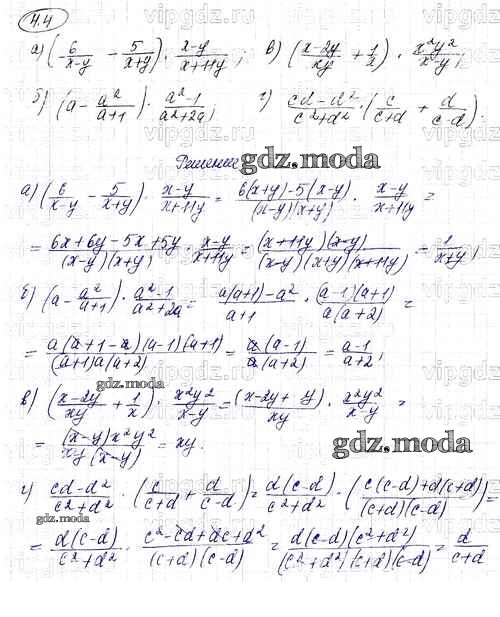 4.4
а) (6/(x-y) - 5/(x+y)) · (x-y)/(x+11y); в) ((x-2y)/xy + 1/x) · x²y²/(x-y);
б) (a - a²/(a+1)) · (a²-1)/(a²+2a); г) (cd-d²)/(c²+d²) · (c/(c+d) + d/(c-d)).
Решение
gdz.moda
а) (6/(x-y) - 5/(x+y)) · (x-y)/(x+11y) = (6(x+y)-5(x-y))/((x-y)(x+y)) · (x-y)/(x+11y) =
= (6x+6y-5x+5y)/((x-y)(x+y)) · (x-y)/(x+11y) = ((x+11y)(x-y))/((x-y)(x+y)(x+11y)) = 1/(x+y);
б) (a - a²/(a+1)) · (a²-1)/(a²+2a) = (a(a+1)-a²)/(a+1) · ((a-1)(a+1))/(a(a+2)) =
= (a(a+1-a)(a-1)(a+1))/((a+1)a(a+2)) = (a(a-1))/(a(a+2)) = (a-1)/(a+2);
gdz.moda
в) ((x-2y)/xy + 1/x) · x²y²/(x-y) = (x-2y+y)/xy · x²y²/(x-y) =
= ((x-y)x²y²)/(xy(x-y)) = xy.
gdz.moda
г) (cd-d²)/(c²+d²) · (c/(c+d) + d/(c-d)) = d(c-d)/(c²+d²) · ((c(c-d)+d(c+d))/((c+d)(c-d))) =
gdz.moda
= d(c-d)/(c²+d²) · (c²-cd+dc+d²)/((c+d)(c-d)) = (d(c-d)(c²+d²))/((c²+d²)(c+d)(c-d)) = d/(c+d)
vipgdz.com